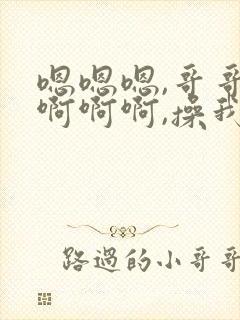 嗯嗯嗯,哥哥
啊啊啊,操我
路過的小哥哥